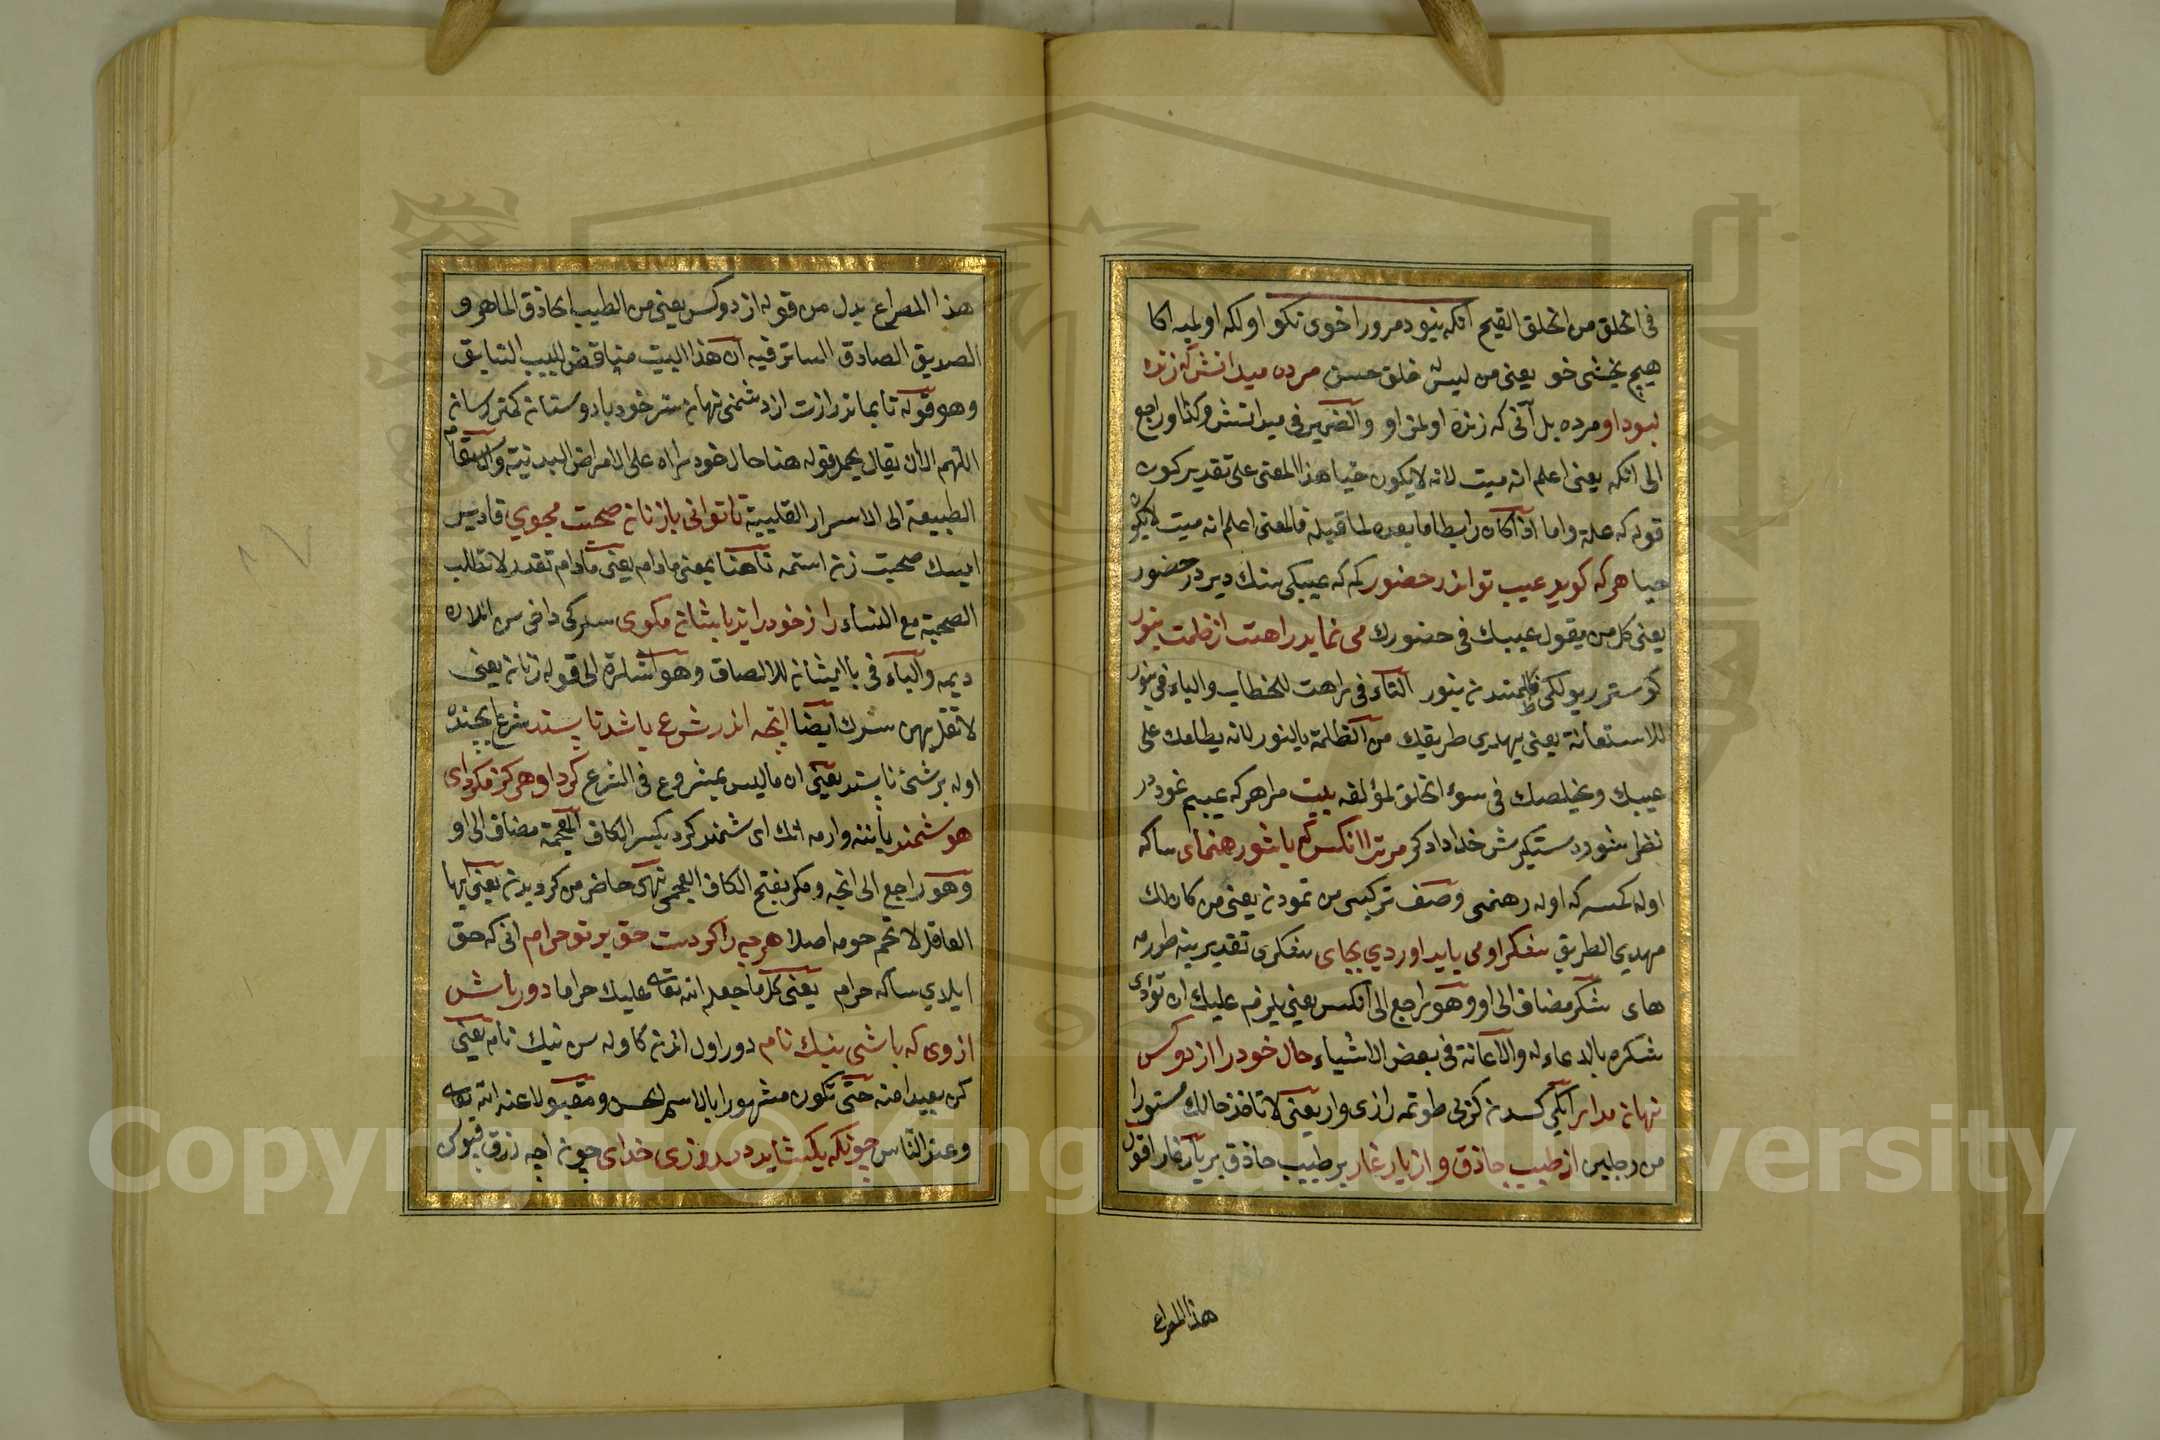 فى الخلق من الخلق القبيح آنكه نبود مرورا خوى نكو اولكه اولميه اكا
هيچ يخشى خو يعنى من ليس له خلق حسن مرده ميدانش كه زنده
نبود او مرده بل آنى كه زنده اولمز او والضمير فى ميدانش مركنا وراجع
الى انكه يعنى اعلم انه ميت لانه لا يكون حيا هذا المعنى على تقدير كون
قوله كه علة واما اذا كان رابطا ما بعده لما قبله فالمعنى اعلم انه ميت لا يكون
حيا هركه كويد عيب تو اندر حضور كه كه عيبكى سنك دير در حضور
يعنى كل من يقول عيبك فى حضورك مى نمايد راهت از ظلمت بنور
كوسترر يولكى ظلمتدن بنور التاء فى راهت للخطاب والباء فى بنور
للاستعانة يعنى يهدي طريقك من الظلمة بالنور لانه يطلعك على
عيبك ويخلصك فى سوء الخلق لمؤلفه بيت مرا هركه عيبم نمود در
نظر شود دستكيرش خدا دادكر مر ترا انكس كه باشد رهنماى ساكه
اوله كمسه كه اوله رهنمى وصف تركيبى من نمودن يعنى من كان لك
مهدي الطريق شكر او مى بايد اوردي بجاى شكرى تقدير ينه طورمه
هاى شكر مضاف الى او وهو راجع الى آنكس يعنى يلزم عليك ان تؤدى
شكره بالدعاء له والاعانة فى بعض الاشياء حال خود را از دوكس
نهان مدار ايكى كسدن كزلى طوتمه رازى وار يعنى لا تاخذ حالك مستورا
من رجلين از طبيب حاذق و از يار غار بر طبيب حاذق بر يار غار اقول
هذا المصراع
هذا المصراع بدل من قوله از دوكس يعنى من الطبيب الحاذق الماهر و
الصديق الصادق الساتر فيه ان هذا البيت مناقض للبيت السابق
وهو قوله تا بماند رازت از دشمن نهان سر خود با دوستان كمتر رسان
اللهم الا ان يقال يحمل قوله هنا حال خود را على الامراض البدنية والاسقام
الطبيعة الى الاسرار القلبية تا توانى با زنان صحبت مجوي قادر
ايسك صحبت زن استمه تا هنا بمعنى مادام يعنى مادام تقدر لا تطلب
الصحبة مع النساء راز خود را نيز با ايشان مكوى سركى داخى سن انلره
ديمه والباء فى با ايشان للالصاق وهو اشارة الى قوله زنان يعنى
لا تقل بهن سرك ايضا انچه اندر شرع باشد ناپسند شرع ايچنده
اوله بر شئ ناپسند يعنى ان ما ليس بمشروع فى الشرع كرد او هركز مكرد اى
هوشمند يا ننه وارمه انك اى شمند كرد بكسر الكاف العجمية مضاف الى او
وهو راجع الى انچه ومكرد بفتح الكاف العجمى نهى حاضر من كرديدن يعنى ايها
العاقل لا تحم حومه اصلا هرچه را كردست حق بر تو حرام انى كه حق
ايلدي ساكه حرام يعنى كل ما جعل الله تعالى عليك حراما دور باش
از وى كه باشى نيك نام دور اول اندن كا وله سن نيك نام يعنى
كن بعيدا منه حتى تكون مشهورا بالاسم الحسن ومقبولا عند الله تعالى
وعند الناس چونكه بكشايد در روزى خداى چون اچه رزق قپوسن